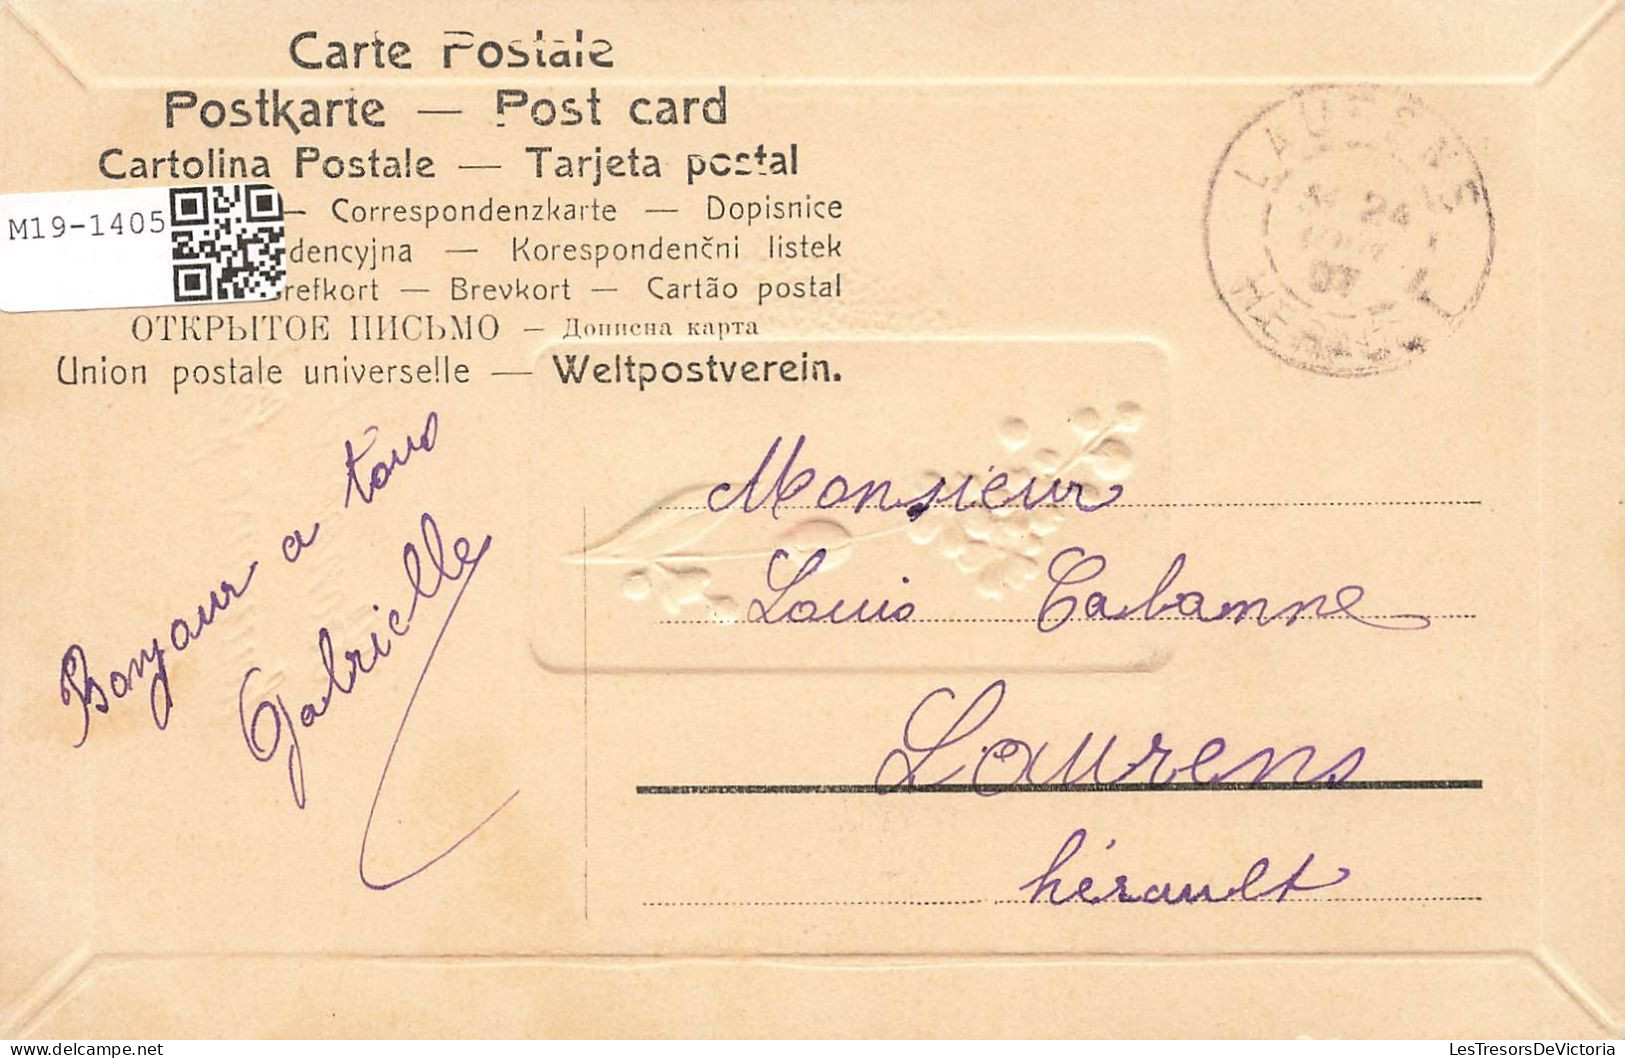 Carte Postale
Postkarte — Post card
Cartolina Postale — Tarjeta postal
M19-1405
— Correspondenzkarte — Dopisnice
dencyjna — Korespondenčni listek
Brefkort — Brevkort — Cartão postal
ОТКРЫТОЕ ПИСЬМО — Дописна карта
Union postale universelle — Weltpostverein.
LAURENS
24
07
HERAULT
Bonjour a tous
Gabrielle
Monsieur
Louis Cabanne
Laurens
hérault
LesTresorsDeVictoria